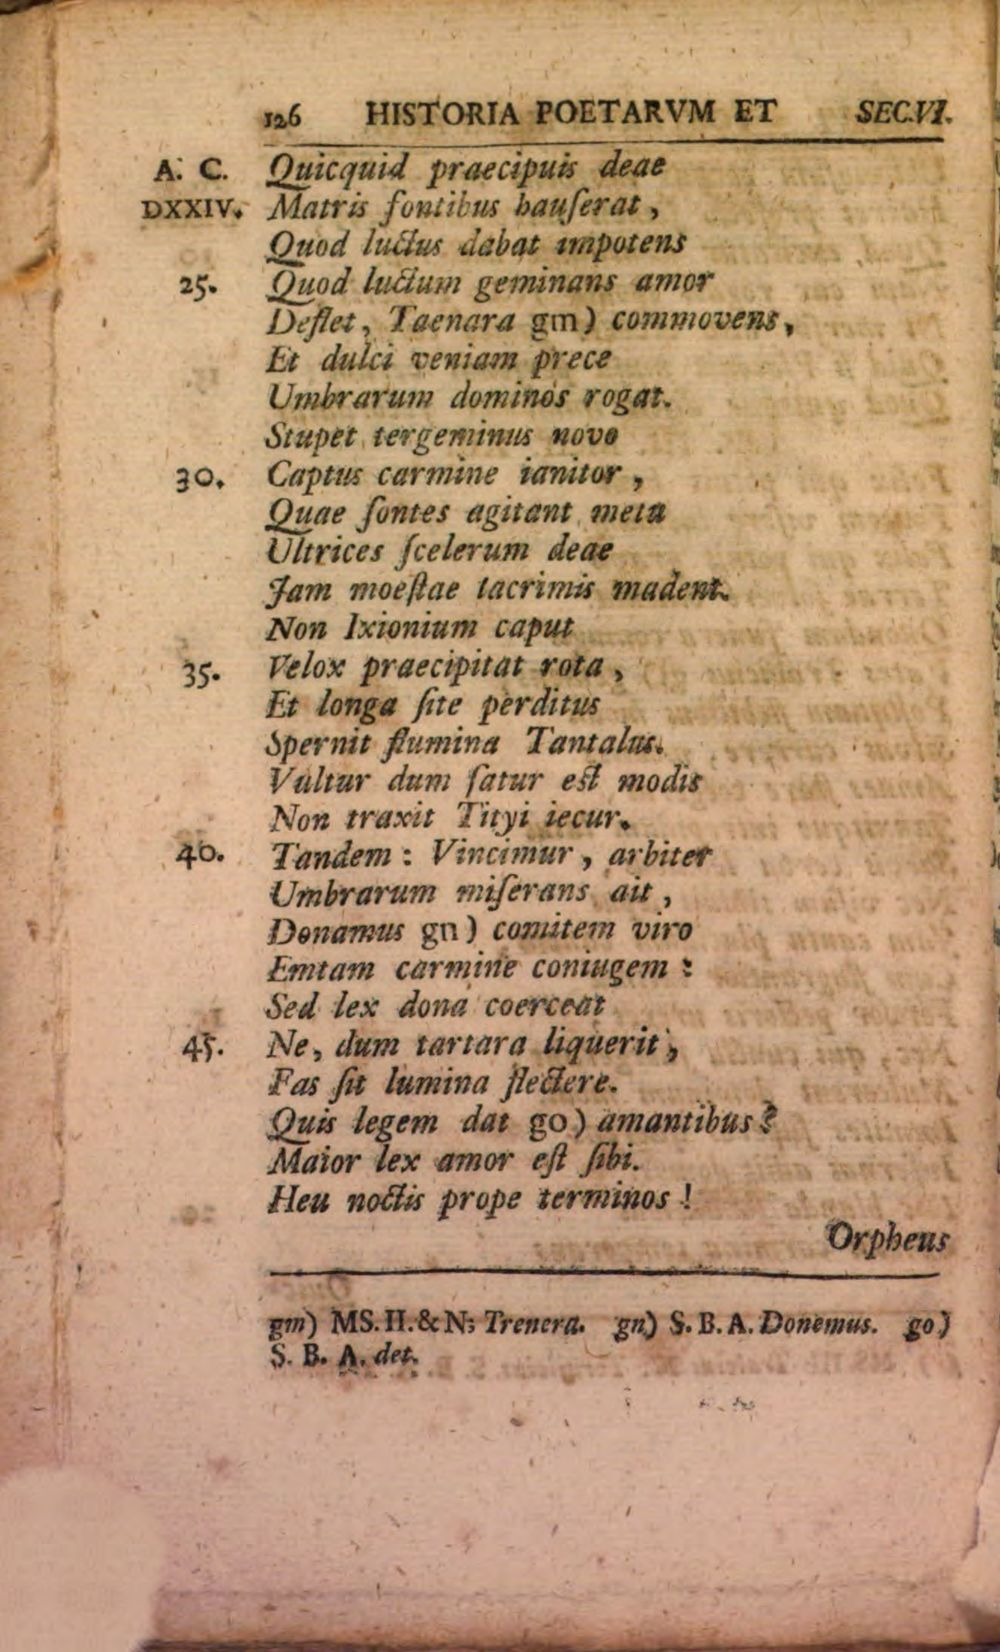 126 HISTORIA POETARVM ET SEC.VI.
A. C. Quicquid praecipuis deae
DXXIV. Matris fontibus hauſerat,
Quod luctus dabat impotens
25. Quod luctum geminans amor
Deflet, Taenara gm) commovens,
Et dulci veniam prece
Umbrarum dominos rogat.
Stupet tergeminus novo
30. Captus carmine ianitor,
Quae ſontes agitant metu
Ultrices ſcelerum deae
Jam moeſtae lacrimis madent.
Non Ixionium caput
35. Velox praecipitat rota,
Et longa ſite perditus
Spernit flumina Tantalus.
Vultur dum ſatur eſt modis
Non traxit Tityi iecur.
40. Tandem: Vincimur, arbiter
Umbrarum miſerans ait,
Donamus gn) comitem viro
Emtam carmine coniugem:
Sed lex dona coerceat
45. Ne, dum tartara liquerit,
Fas ſit lumina flectere.
Quis legem dat go) amantibus?
Maior lex amor eſt ſibi.
Heu noctis prope terminos!
Orpheus
gm) MS. H. & N; Trenera. gn) S. B. A. Donemus. go)
S. B. A. det.